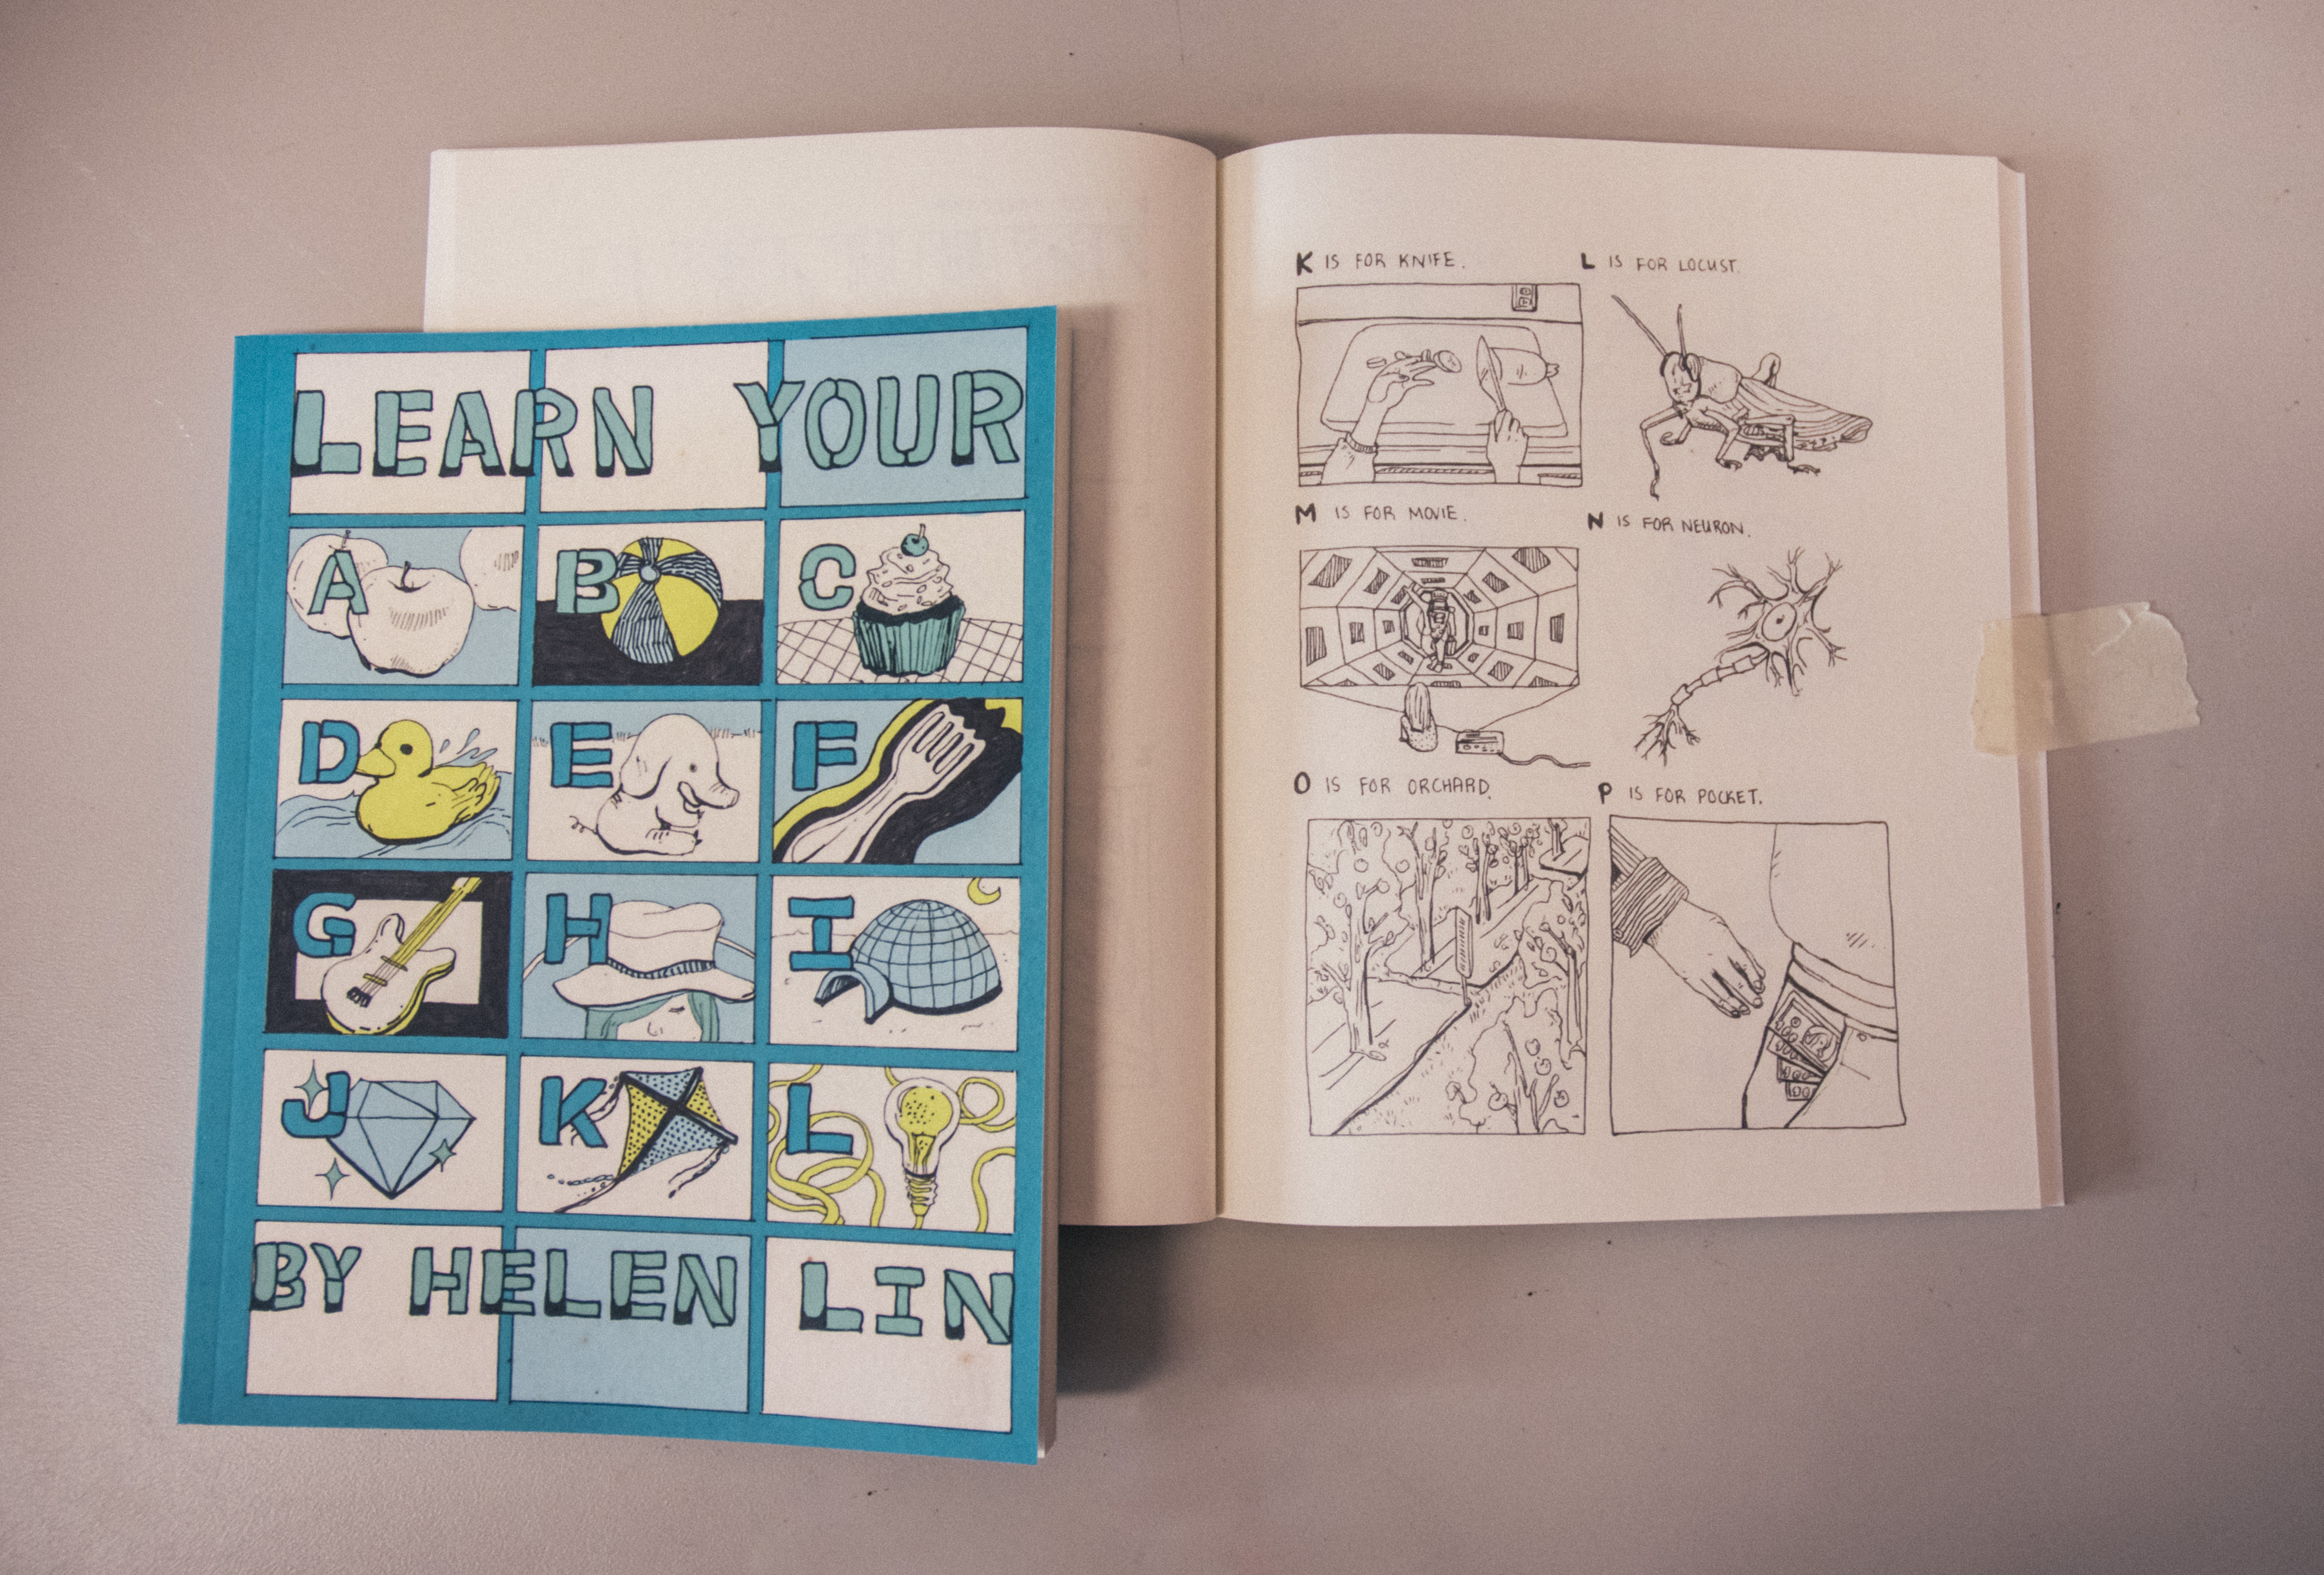 LEARN YOUR
A B C
D E F
G H I
J K L
BY HELEN LIN
K IS FOR KNIFE.
L IS FOR LOCUST.
M IS FOR MOVIE.
N IS FOR NEURON.
O IS FOR ORCHARD.
P IS FOR POCKET.